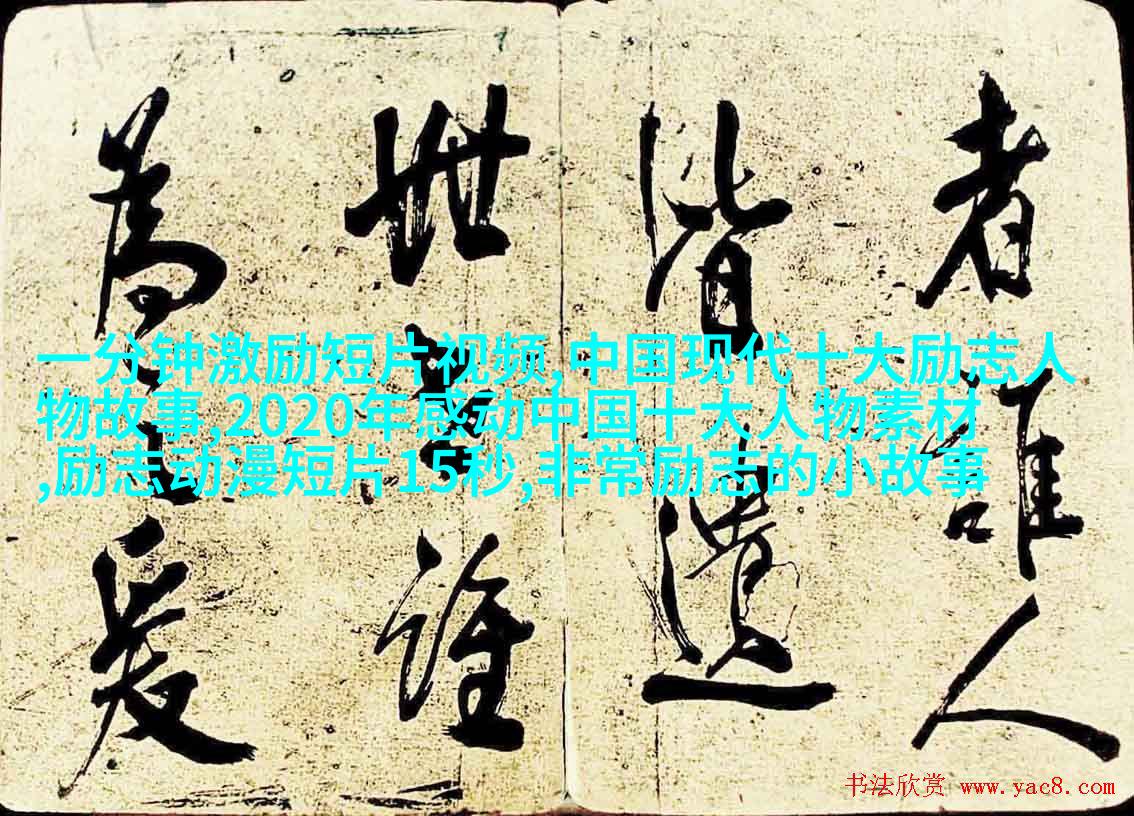 者唯人
皆遺
世誰
為之爰
一分钟激励短片视频,中国现代十大励志人
物故事,2020年感动中国十大人物素材
,励志动漫短片15秒,非常励志的小故事
书法欣赏 www.yac8.com